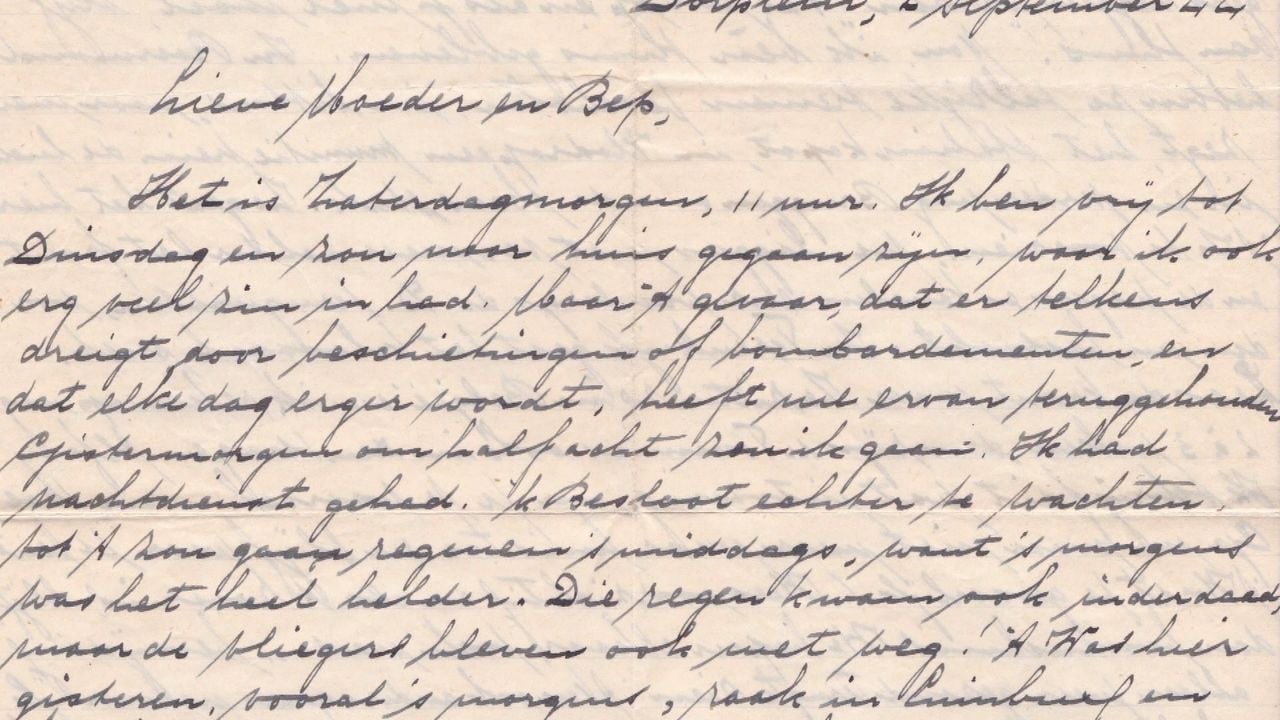 Dorplein, 2 September 44
Lieve Moeder en Bep,
Het is Zaterdagmorgen, 11 uur. Ik ben vrij tot
Dinsdag en zou naar huis gegaan zijn, waar ik ook
erg veel zin in had. Maar 't gevaar, dat er telkens
dreigt door beschietingen of bombardementen, en
dat elke dag erger wordt, heeft me ervan teruggehouden
Gistermorgen om half acht zou ik gaan. Ik had
nachtdienst gehad. Ik Besloot echter te wachten
tot 't zou gaan regenen 's middags, want 's morgens
was het heel helder. Die regen kwam ook inderdaad,
maar de vliegers bleven ook niet weg! 't Was hier
gisteren, vooral 's morgens, raak in Limburg en